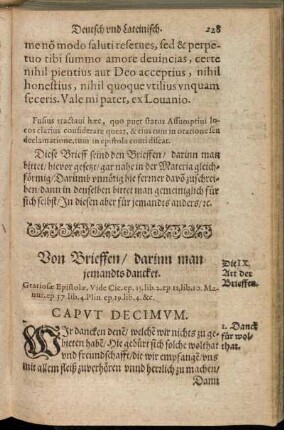 Deutsch vnd Lateinisch. 228
me nõ modo saluti reserues, sed & perpe-
tuo tibi summo amore deuincias, certe
nihil pientius aut Deo acceptius, nihil
honestius, nihil quoque vtilius vnquam
feceris. Vale mi pater, ex Louanio.
Fusius tractaui hæc, quo puer status Assumptiui lo-
cos clarius considerare queat, & eius cum in oratione seu
declamatione, tum in epistola comi discat.
Diese Brieff seind den Brieffen/ darinn man
bittet/ hievor gesetzt/ gar nahe in der Materia gleich-
förmig/ Darumb vnnötig die ferrner davõ zuschrei-
ben dann in denselben bittet man gemeiniglich für
sich selbst/ In diesen aber für jemandts anders/ ꝛc.
Von Brieffen/ darinn man
jemandts dancket.
Die IX.
Art der
Brieffen.
Gratiosæ Epistolæ. Vide Cic. ep. 13. lib. 2. ep. 11. lib. 10. Ma-
nut. ep. 37. lib. 4. Plin. ep. 19. lib. 4. &c.
CAPVT DECIMVM.
WIr dancken denẽ/ welchẽ wir nichts zu ge-
bieten habẽ/ Hie gebürt sich solche wolthat
vnd freundschafft/ die wir empfangẽ/ vns
mit allem fleiß zuverhören vnnd herzlich zu machen/
1. Danck
für wol-
that.
Dann